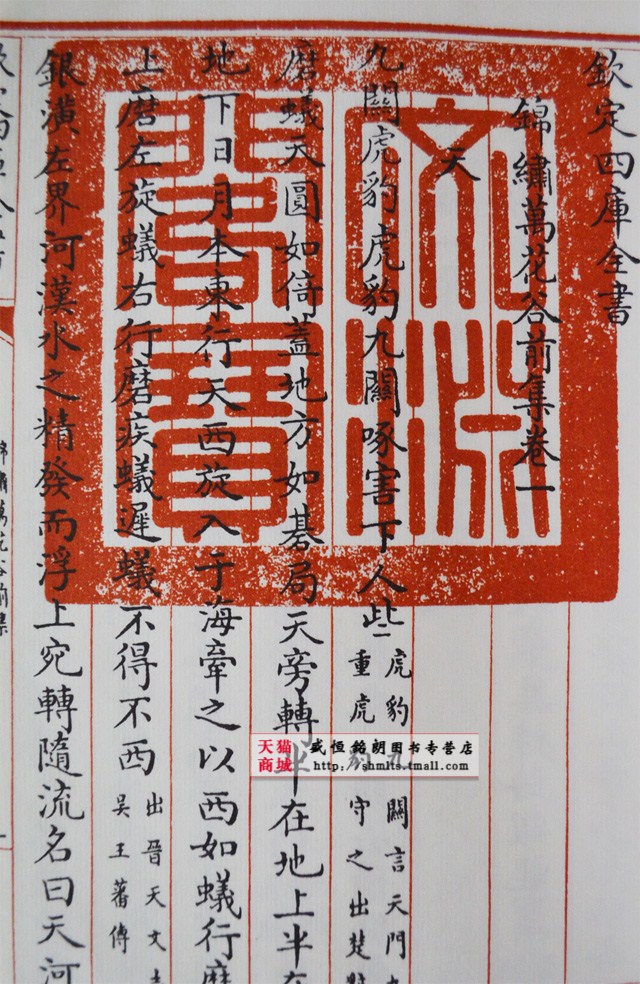 欽定四庫全書
錦繡萬花谷前集卷一
天
九關虎豹虎豹九關啄害下人些
虎豹九關言天門
重虎豹守之出楚
磨蟻天圓如倚蓋地方如碁局天旁轉半在地上半在
地下日月本東行天西旋入于海牽之以西如蟻行磨
上磨左旋蟻右行磨疾蟻遲蟻不得不西
出晉天文志
吳王蕃傳
銀潢左界河漢水之精發而浮上宛轉隨流名曰天河
錦繡萬花谷前集
文淵閣寶
天猫商城
盛恒铭朗图书专营店
http://shmlts.tmall.com